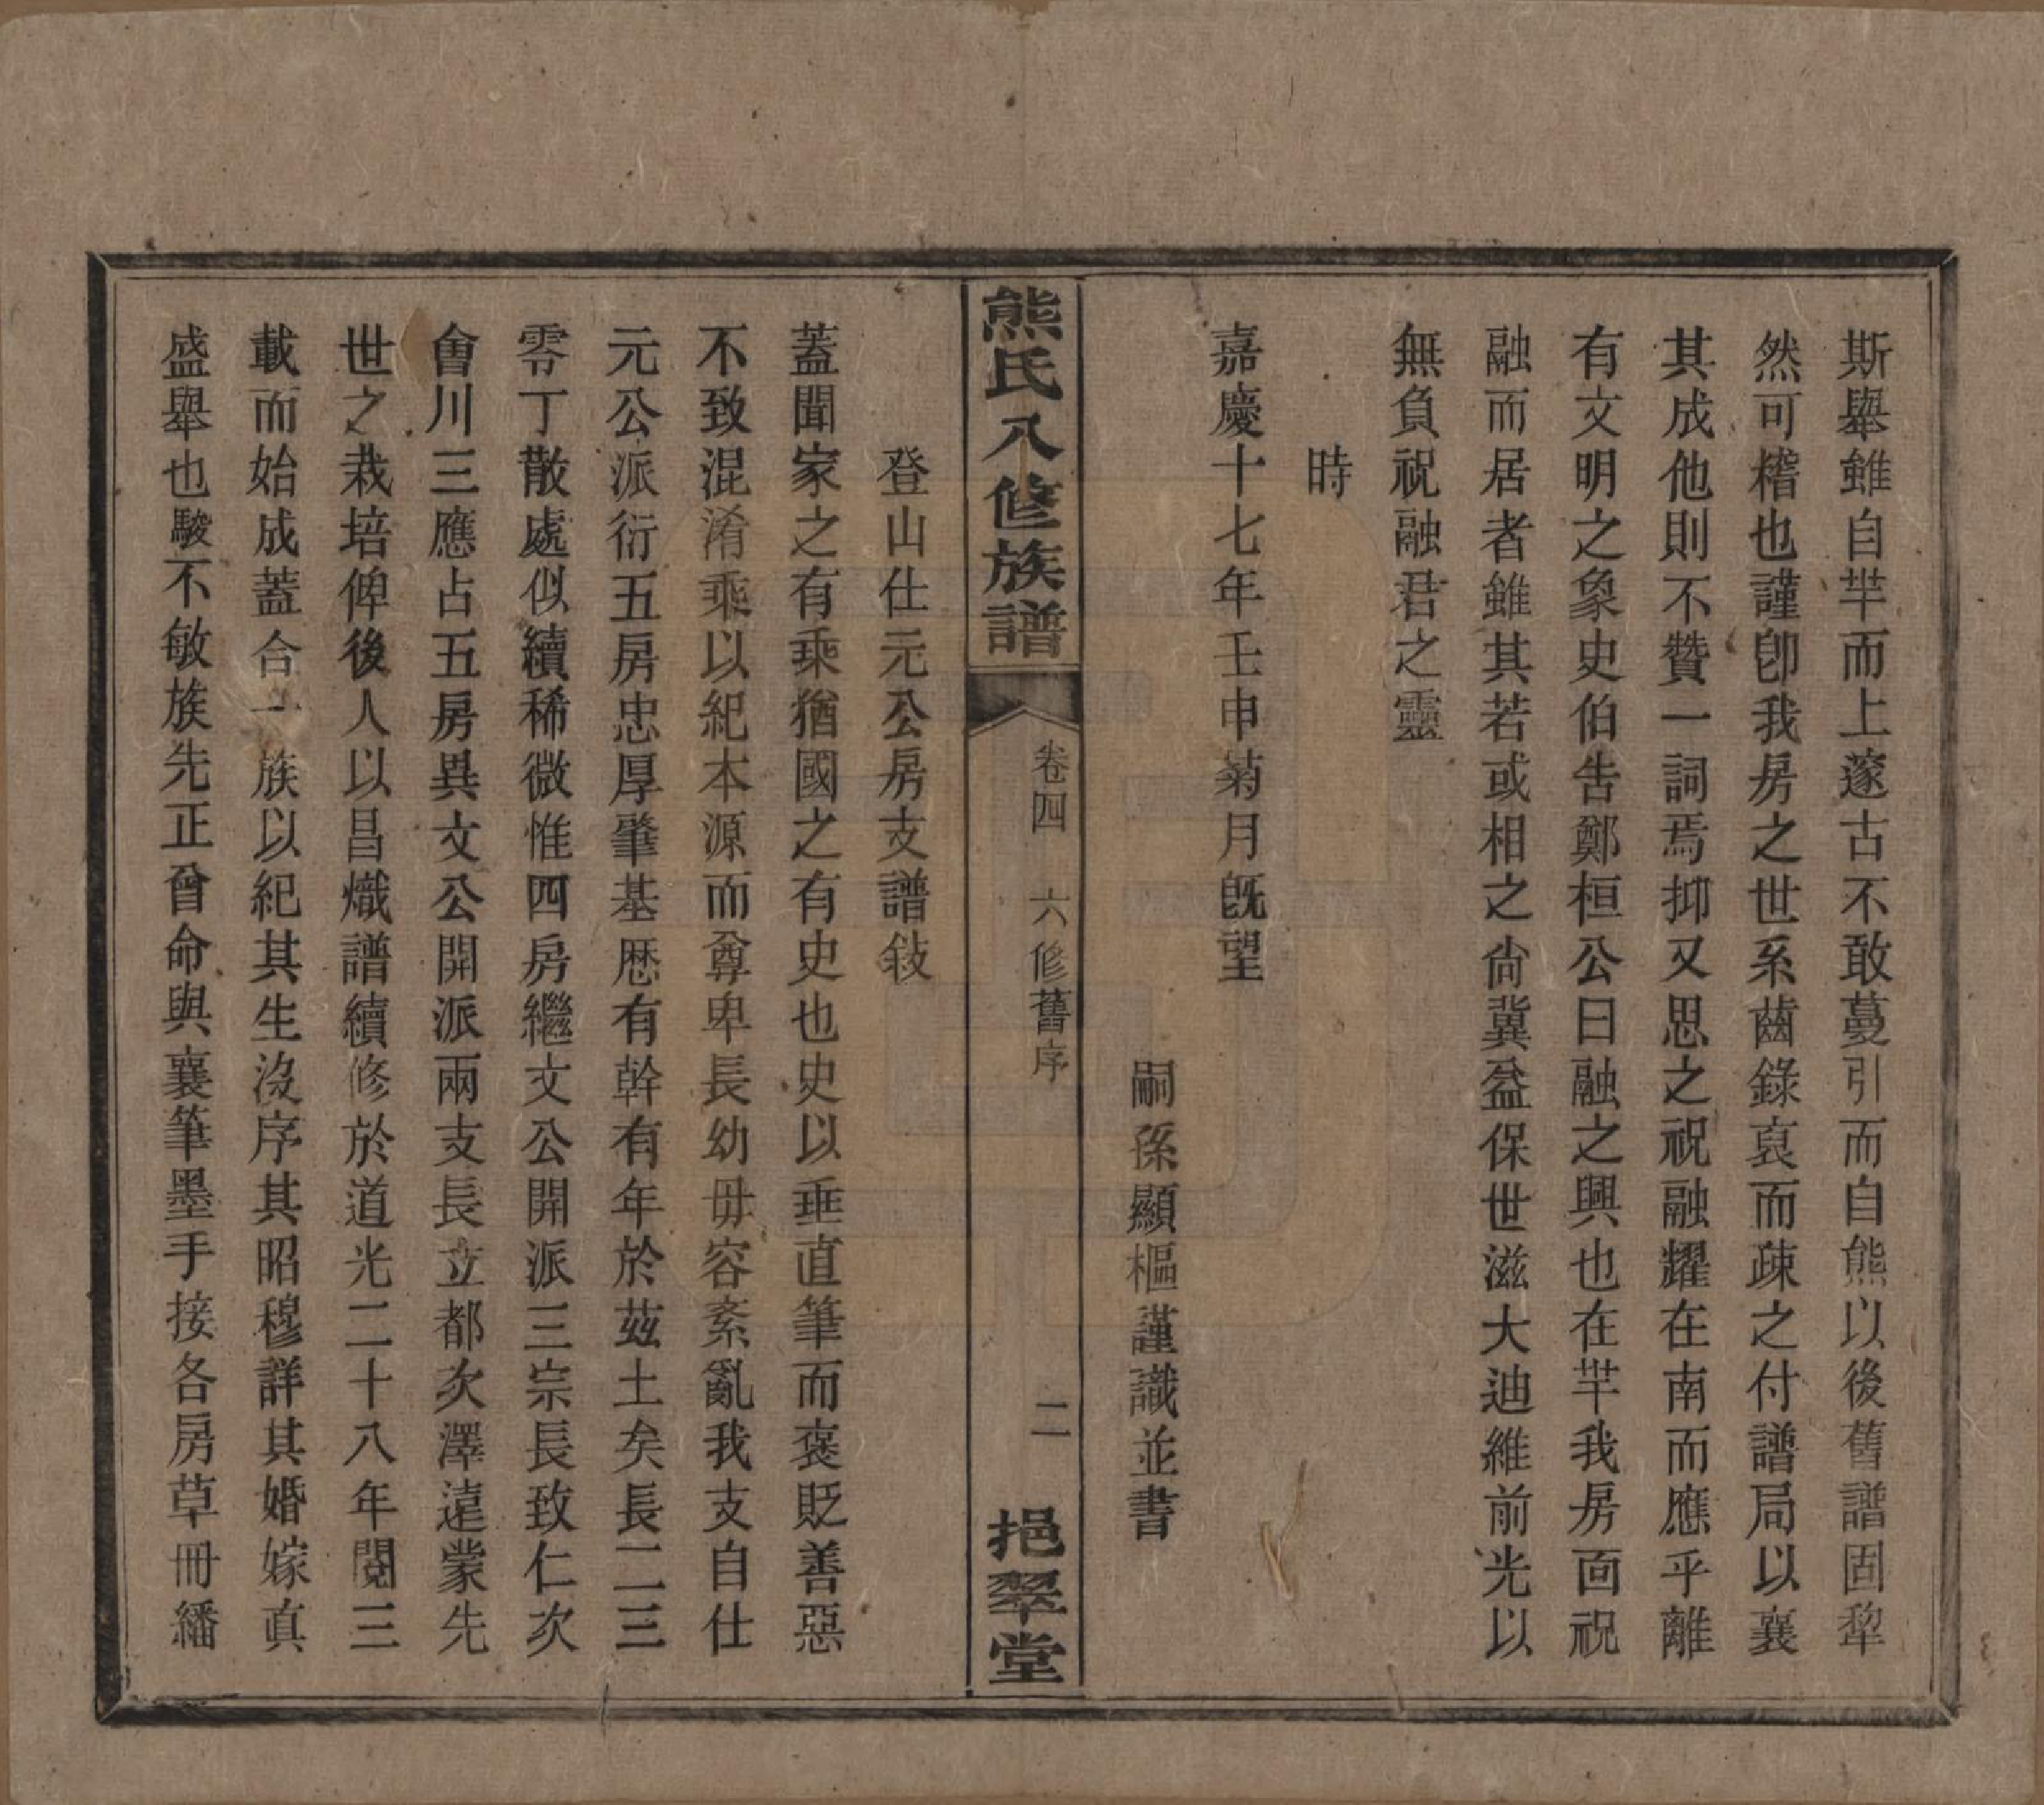 斯舉雖自羋而上邃古不敢蔓引而自熊以後舊譜固犂
然可稽也謹卽我房之世系齒錄裒而疎之付譜局以襄
其成他則不贊一詞焉抑又思之祝融耀在南而應乎離
有文明之象史伯告鄭桓公曰融之興也在羋我房面祝
融而居者雖其若或相之尙冀益保世滋大迪維前光以
無負祝融君之靈
時
嘉慶十七年壬申菊月旣望
嗣孫顯樞謹識並書
熊氏八修族譜
卷四 六修舊序
二
挹翠堂
登山仕元公房支譜敍
蓋聞家之有乘猶國之有史也史以垂直筆而褒貶善惡
不致混淆乘以紀本源而尊卑長幼毋容紊亂我支自仕
元公派衍五房忠厚肇基歷有幹有年於茲土矣長二三
零丁散處似續稀微惟四房繼文公開派三宗長致仁次
會川三應占五房異文公開派兩支長立都次澤遠蒙先
世之栽培俾後人以昌熾譜續修於道光二十八年閱三
載而始成蓋合一族以紀其生沒序其昭穆詳其婚嫁眞
盛舉也駿不敏族先正曾命與襄筆墨手接各房草冊繙